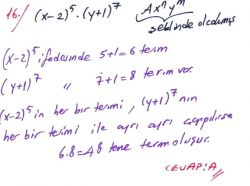 16./ (x-2)⁵.(y+1)⁷ Axⁿyᵐ
şeklinde olacakmış
(x-2)⁵ ifadesinde 5+1=6 terim
(y+1)⁷ " 7+1=8 terim var.
(x-2)⁵ in her bir terimi, (y+1)⁷ nin
her bir terimi ile ayrı ayrı çarpılırsa
6.8=48 tene terim oluşur.
CEVAP:A